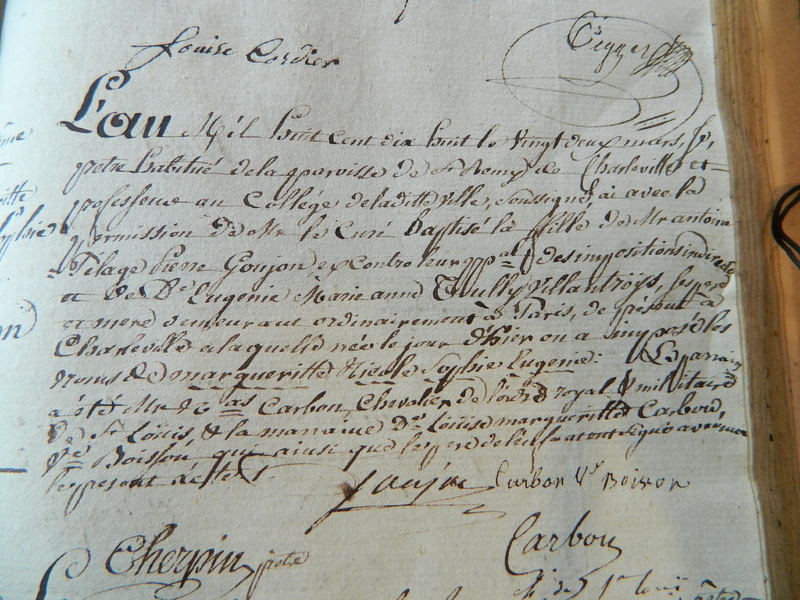 Louise Cordier
L'an Mil huit cent dix huit le vingt deux mars, je,
pretre habitué de la parroisse de St Remy de Charleville et
professeur au Collége de la ditte ville, soussigné, ai avec la
permission de Mr le Curé baptisé la fille de Mr antoine
Pelage Pierre Goujon, ex controleur ppal des impositions indirectes
et de De Eugenie Marie anne Villantroys, ses pere
et mere demeurant ordinairement à Paris, de présent à
Charleville a laquelle née le jour d'hier on a imposé les
noms de margueritte Nicole Sophie Eugenie. Le parrain
a été Mr Carbon, Chevalier de l'ordre royal & militaire
de St Loüis, & la marraine De Loüise margueritte Carbon,
Ve Boisson qui ainsi que le pere de l'enfant ont signé avec moi
le present acte.
Goujon Carbon Ve Boisson
Cherpin ptre Carbon